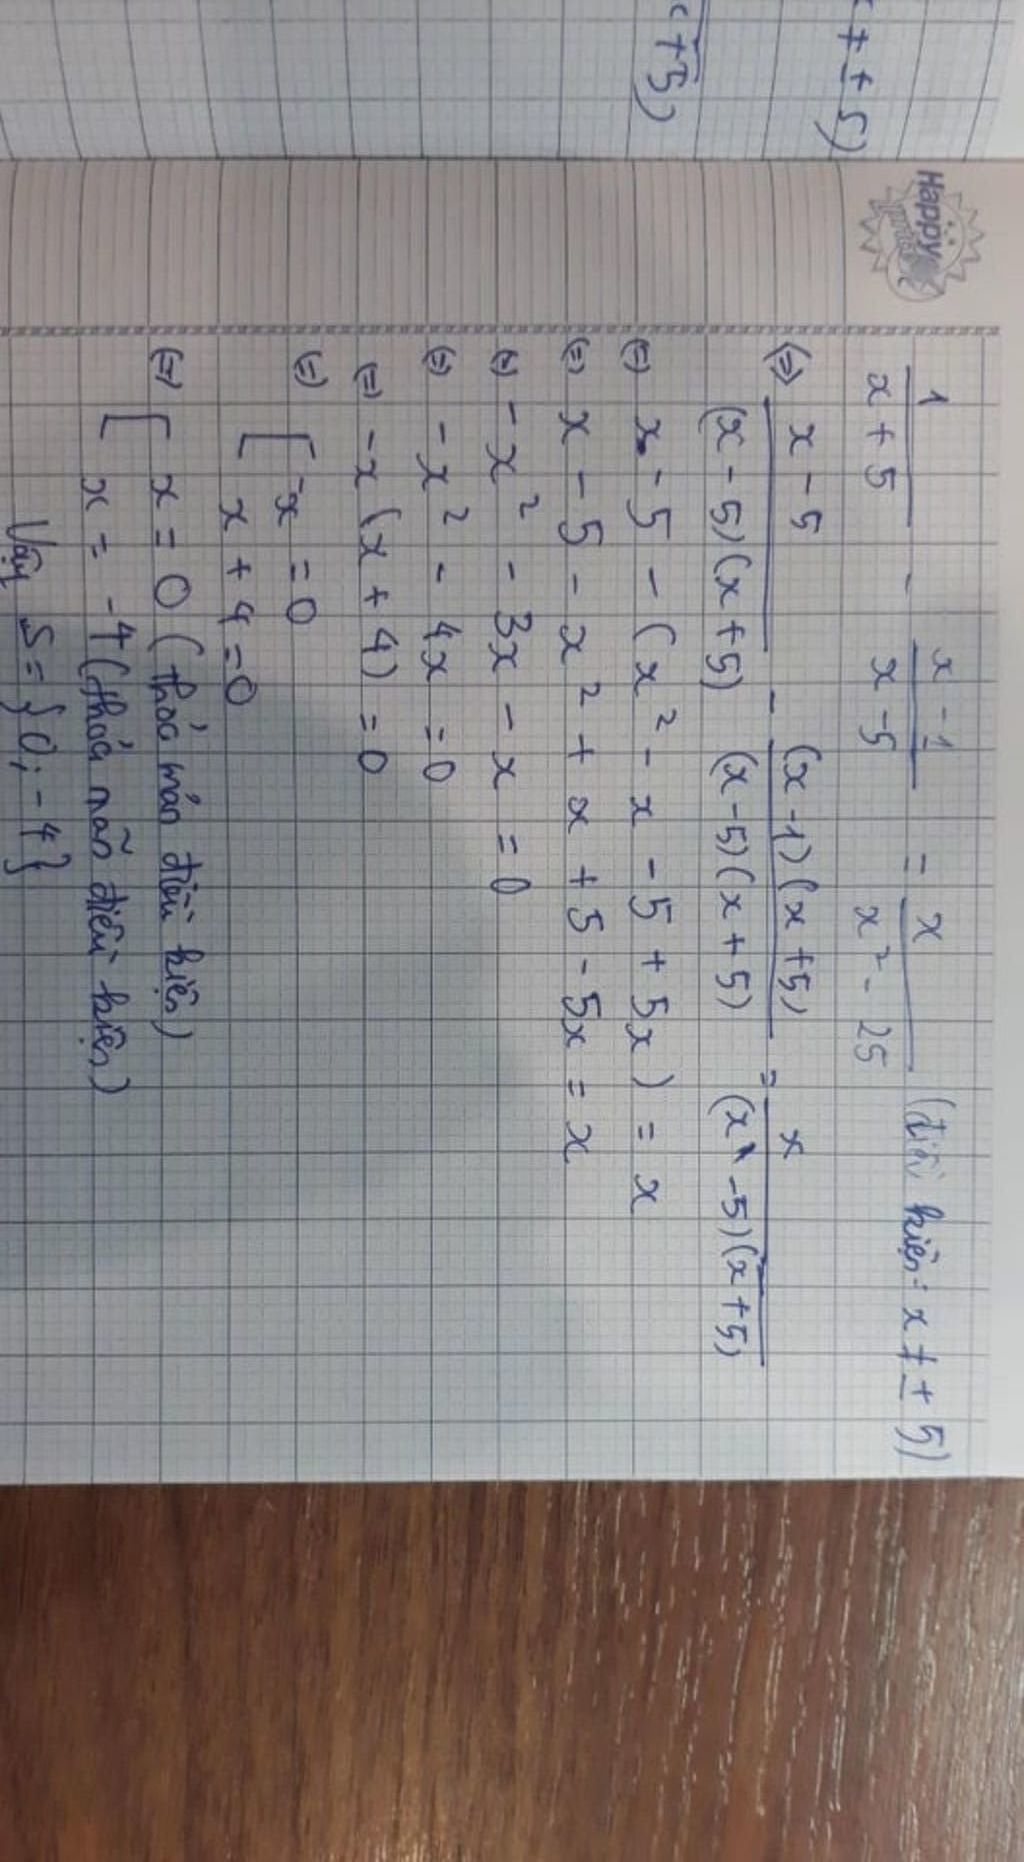 x ≠ ± 5)
x+5)
Happy
1/(x + 5) - (x - 1)/(x - 5) = x/(x² - 25) (điều kiện: x ≠ ± 5)
(=) (x - 5)/((x - 5)(x + 5)) - ((x - 1)(x + 5))/((x - 5)(x + 5)) = x/((x - 5)(x + 5))
(=) x - 5 - (x² - x - 5 + 5x) = x
(=) x - 5 - x² + x + 5 - 5x = x
(=) - x² - 3x - x = 0
(=) - x² - 4x = 0
(=) - x (x + 4) = 0
(=) [ -x = 0
x + 4 = 0
(=) [ x = 0 (thỏa mãn điều kiện)
x = -4 (thỏa mãn điều kiện)
Vậy S = {0; -4}